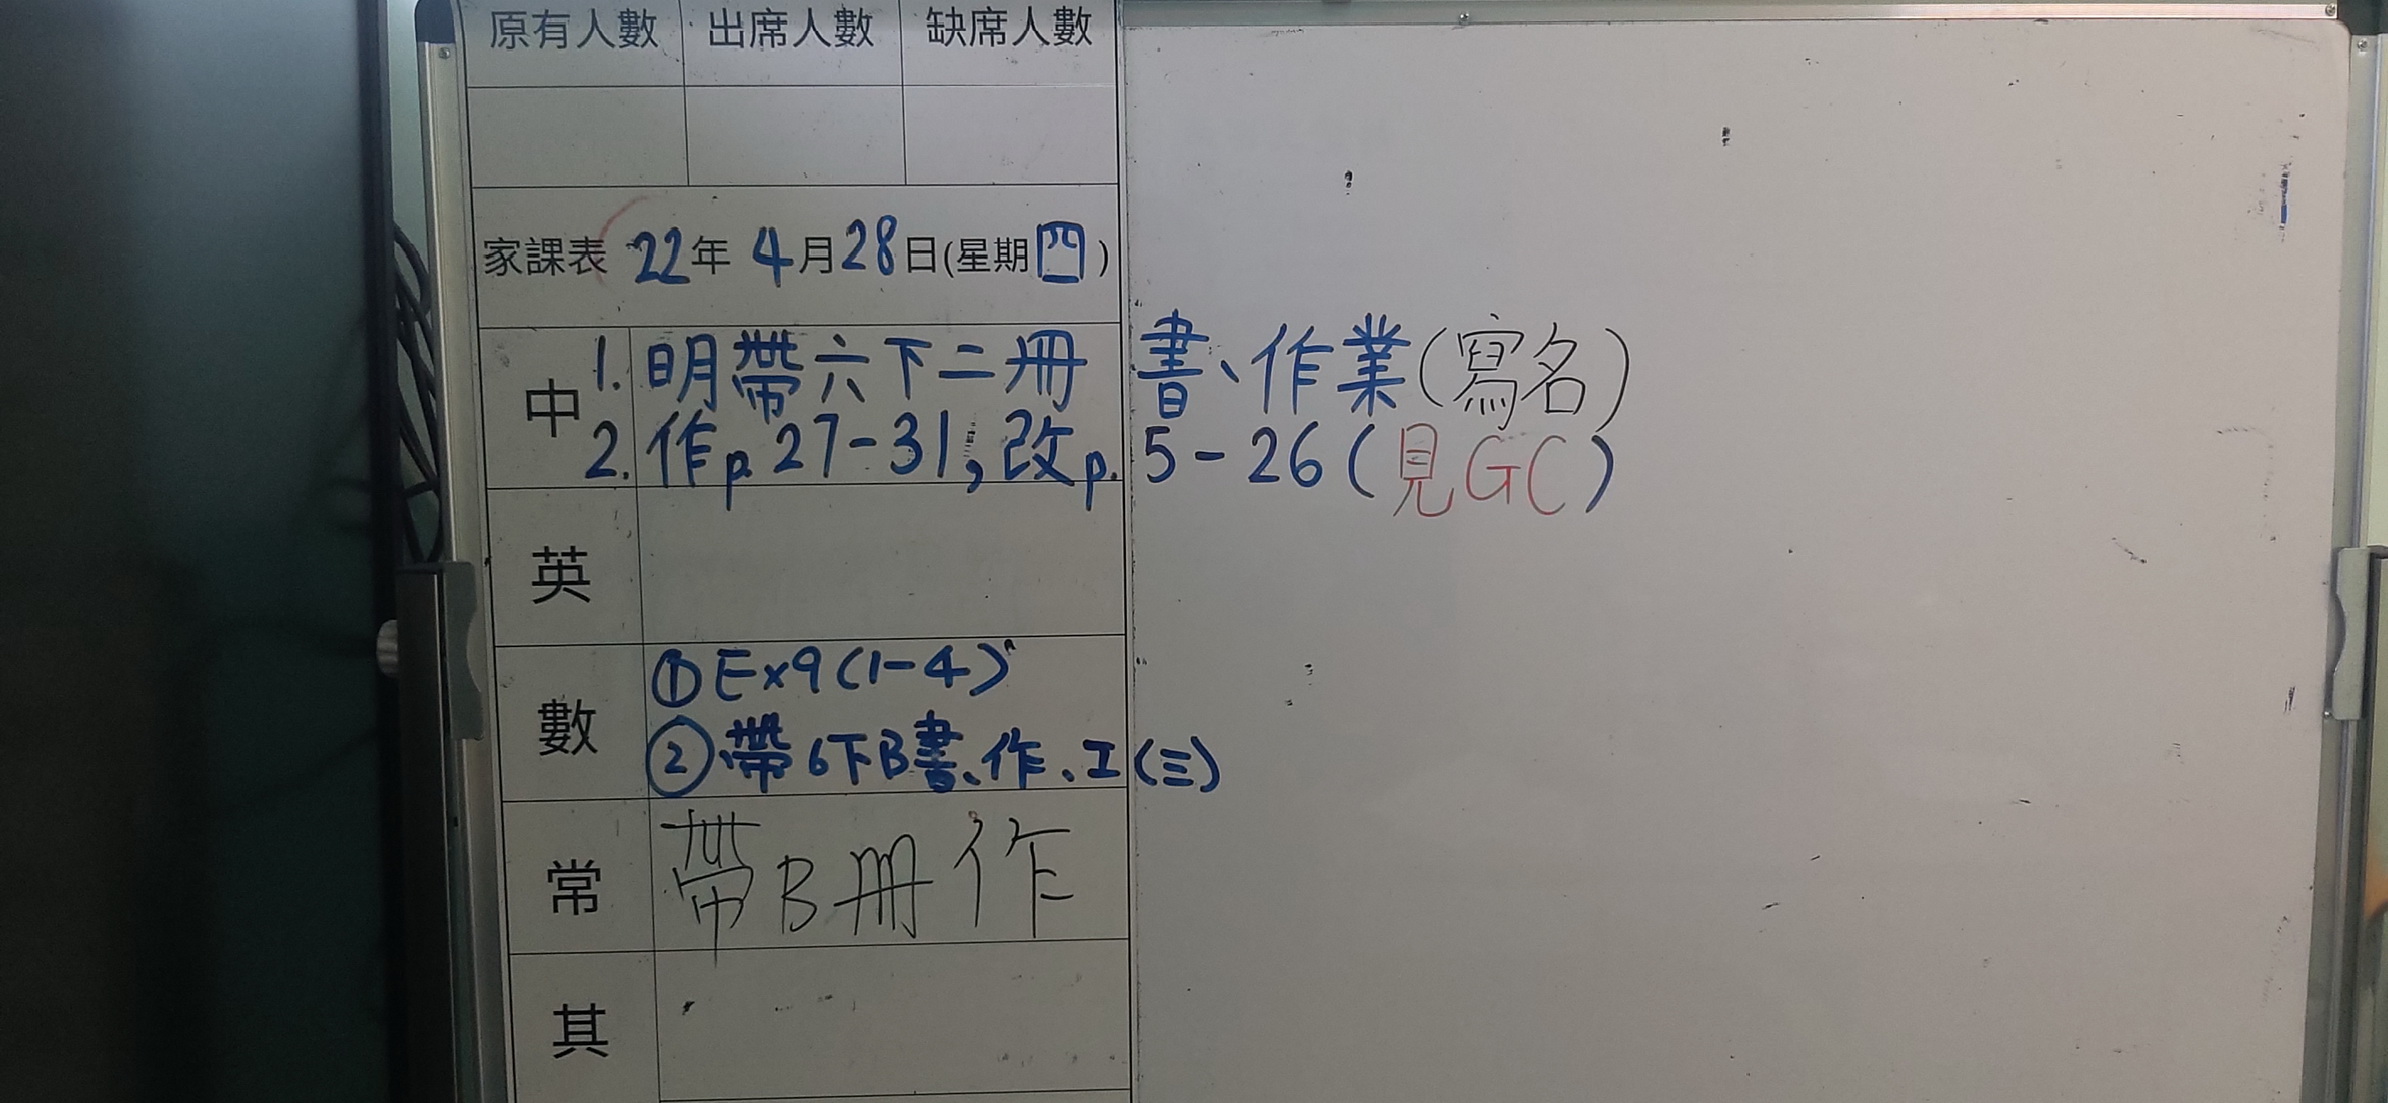 原有人數 出席人數 缺席人數
家課表 22年 4月28日(星期四)
中 1. 明帶六下二冊 書、作業(寫名)
2. 作p.27-31,改p.5-26(見GC)
英
數 ①Ex9(1-4)
②帶6下B書、作、工(三)
常 帶B冊作
其